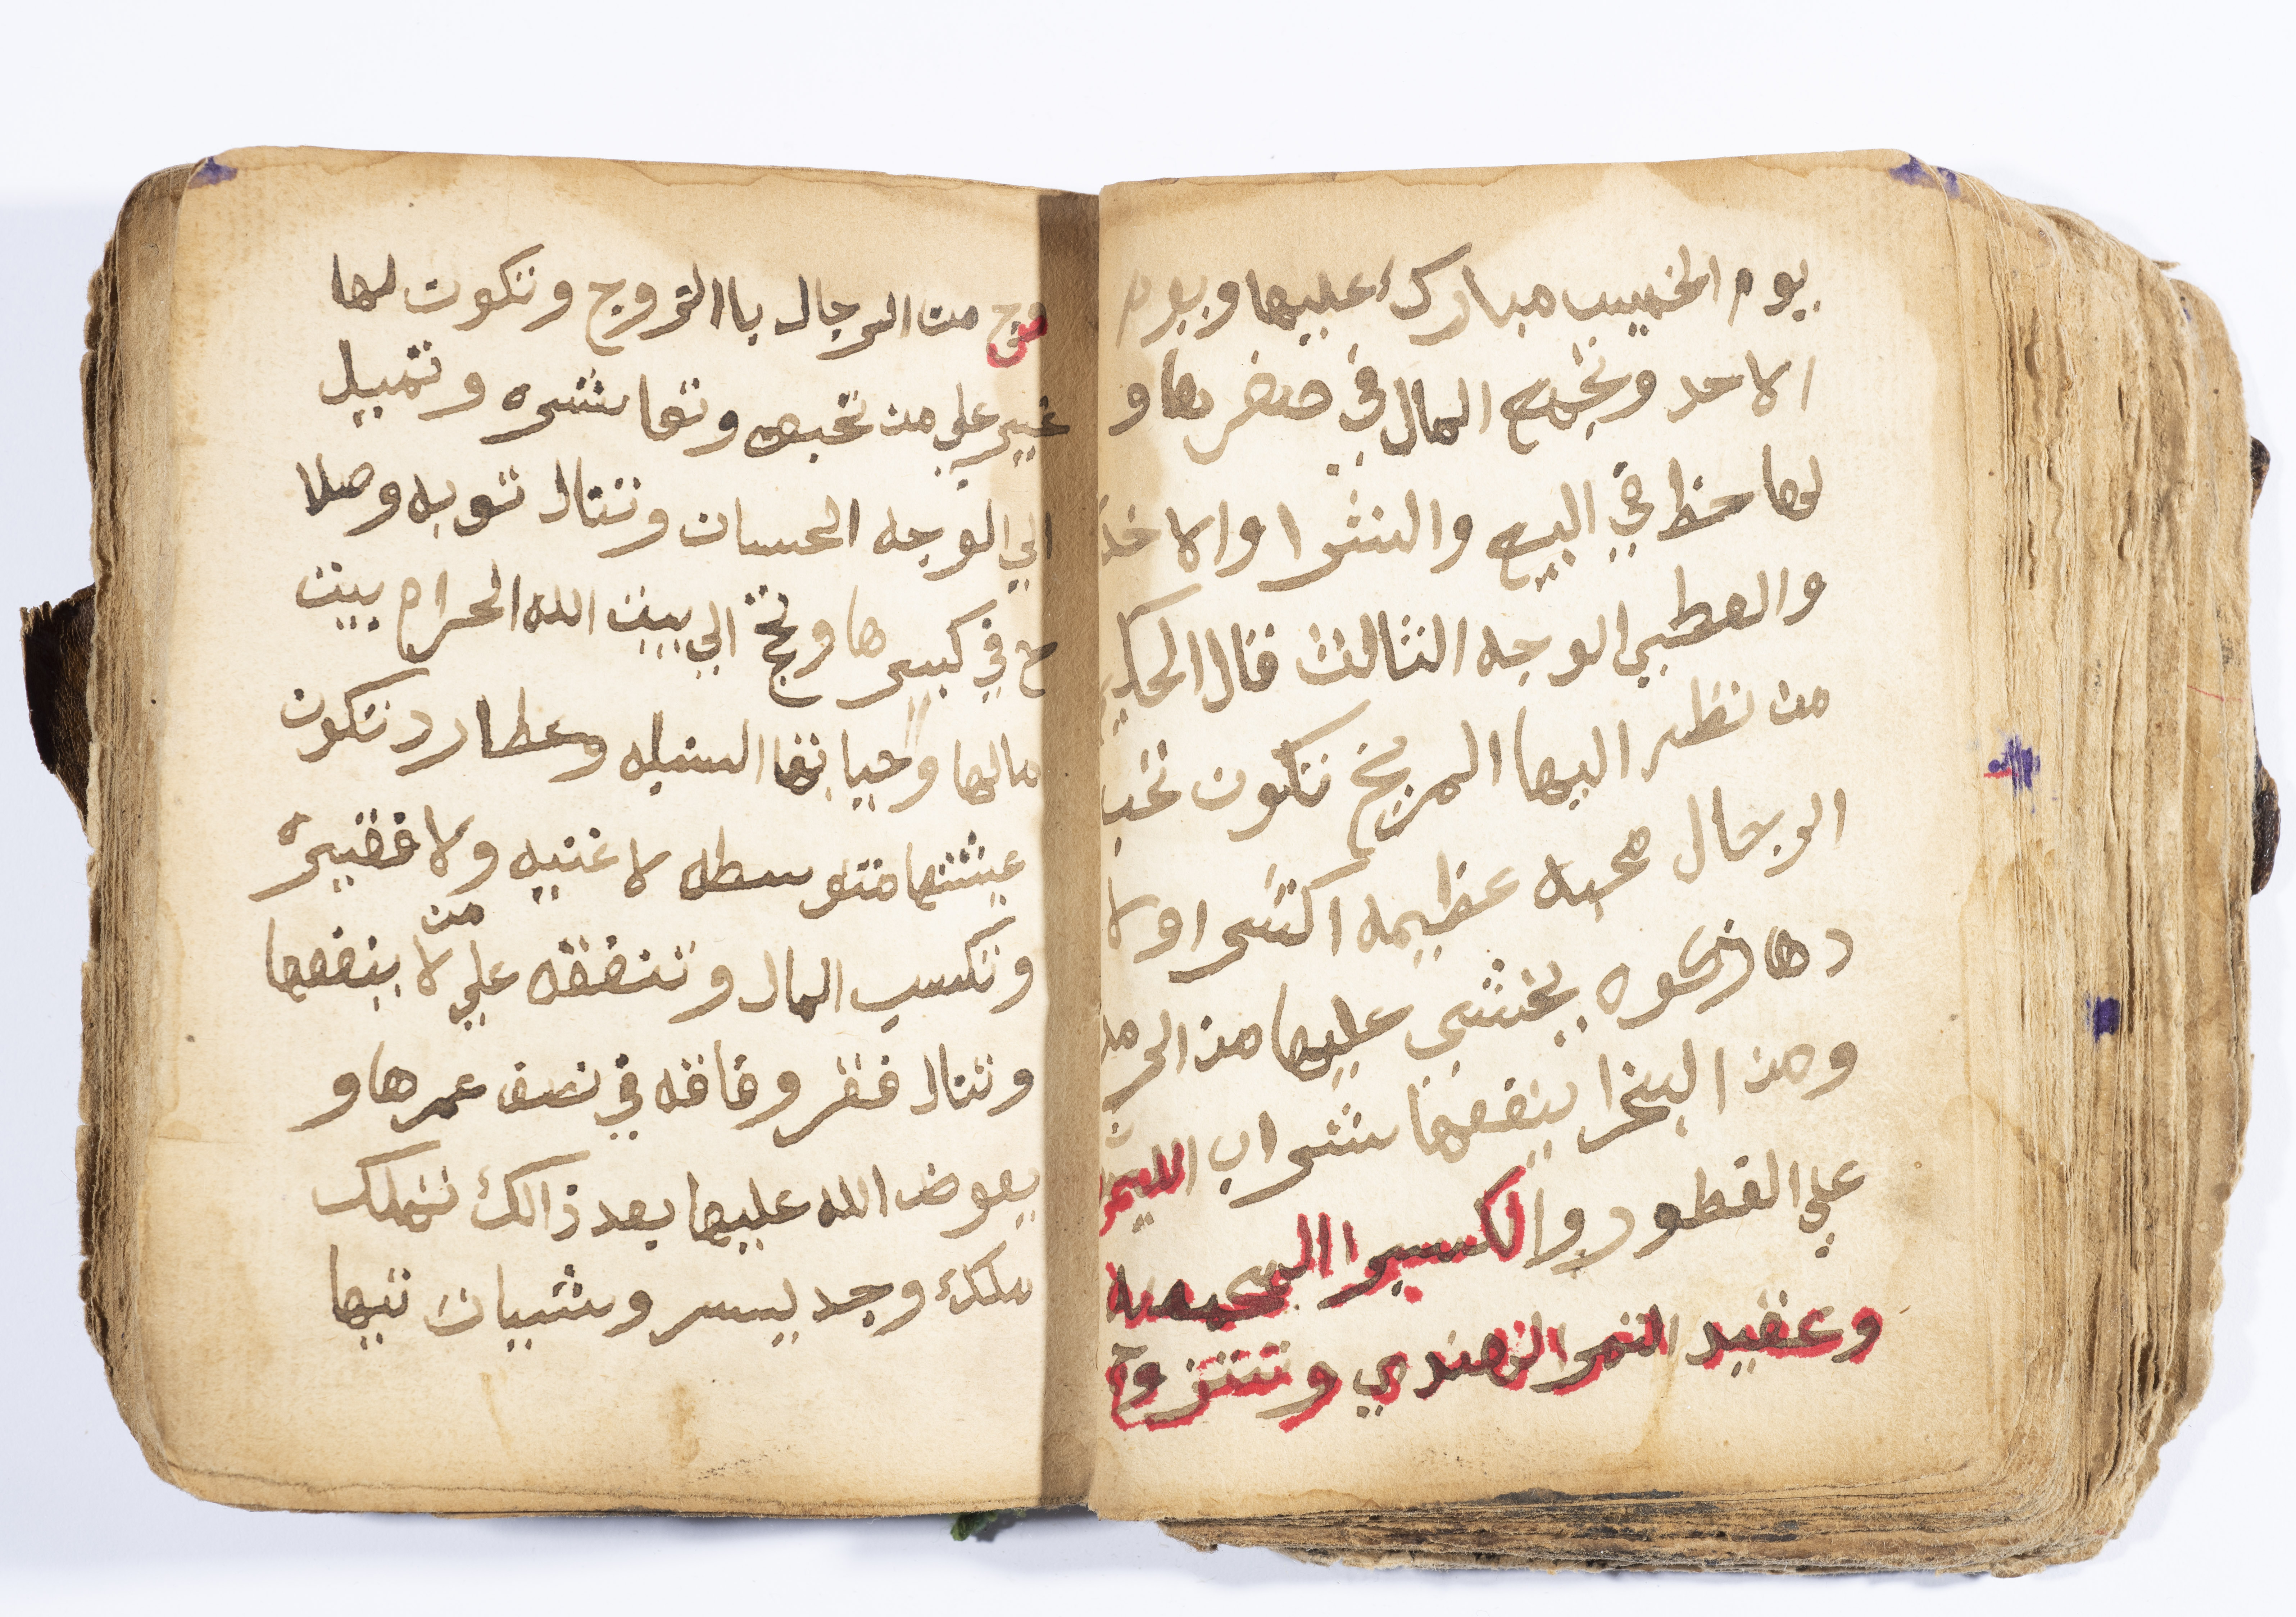 يوم الخميس مبارك عليها ويوم
الاحد وتجمع المال في صغرها و
لها حظ في البيع والشرا والاخذ
والعطي الوجه الثالث قال الحكيم
من نظر اليها المريخ تكون تحب
الرجال محبه عظيمه اكثر اولا
دها ذكوره يخشي عليها من الحر
ومن البخرا ينفعها شراب الليمو
علي الفطور والكسبرا المحمصه
وعقيد التمر الهندي وتتزوج
من الرجال باالتزوج وتكون لها
غير علي من تحبه وتعاشره وتميل
الي الوجه الحسان وتنال توبه وصلا
ح في كبرها وتحج الي بيت الله الحرام بيت
مالها وحياتها السنبله وعطارد تكون
عيشتها متوسطه لا غنيه ولا فقيره
وتكسب المال وتنفقه علي من لا ينفعها
وتنال فقر وفاقه في نصف عمرها و
يعوض الله عليها بعد ذالك تملك
ملك وجد يسر وشبان تيها